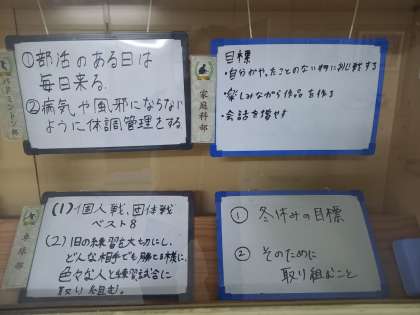 ①部活のある日は
毎日来る。
②病気や風邪にならない
ように体調管理をする
バドミントン部
目標
・自分がやったことのない物に挑戦する
・楽しみながら作品を作る
・会話を増やす
家庭科部
(1)個人戦、団体戦
ベスト8
(2)1日の練習を大切にし、
どんな相手でも勝てる様に、
色々な人と練習試合に
取り組む。
卓球部
① 冬休みの目標
② そのために
取り組むこと